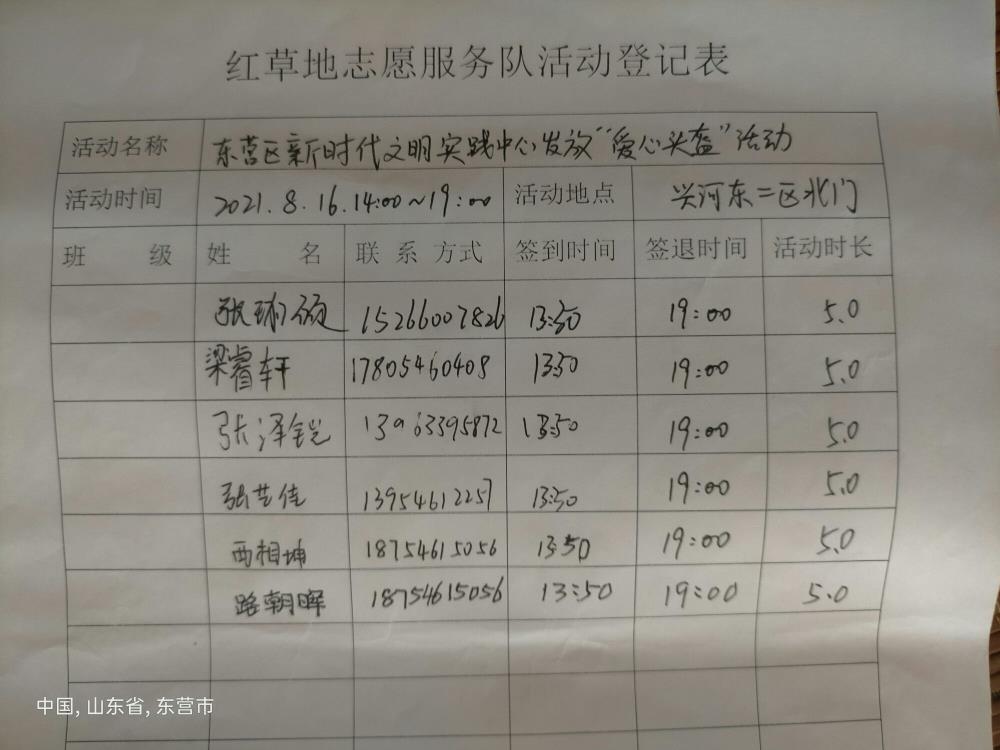 红草地志愿服务队活动登记表
活动名称 东营区新时代文明实践中心发放“爱心头盔”活动
活动时间 2021.8.16.14:00~19:00 活动地点 兴河东二区北门
班 级 姓 名 联系方式 签到时间 签退时间 活动时长
张 15266007826 13:50 19:00 5.0
梁睿轩 17805460408 13:50 19:00 5.0
张泽铠 13963395872 13:50 19:00 5.0
张艺佳 13954612257 13:50 19:00 5.0
西相坤 18754615056 13:50 19:00 5.0
路朝晖 18754615056 13:50 19:00 5.0
中国, 山东省, 东营市